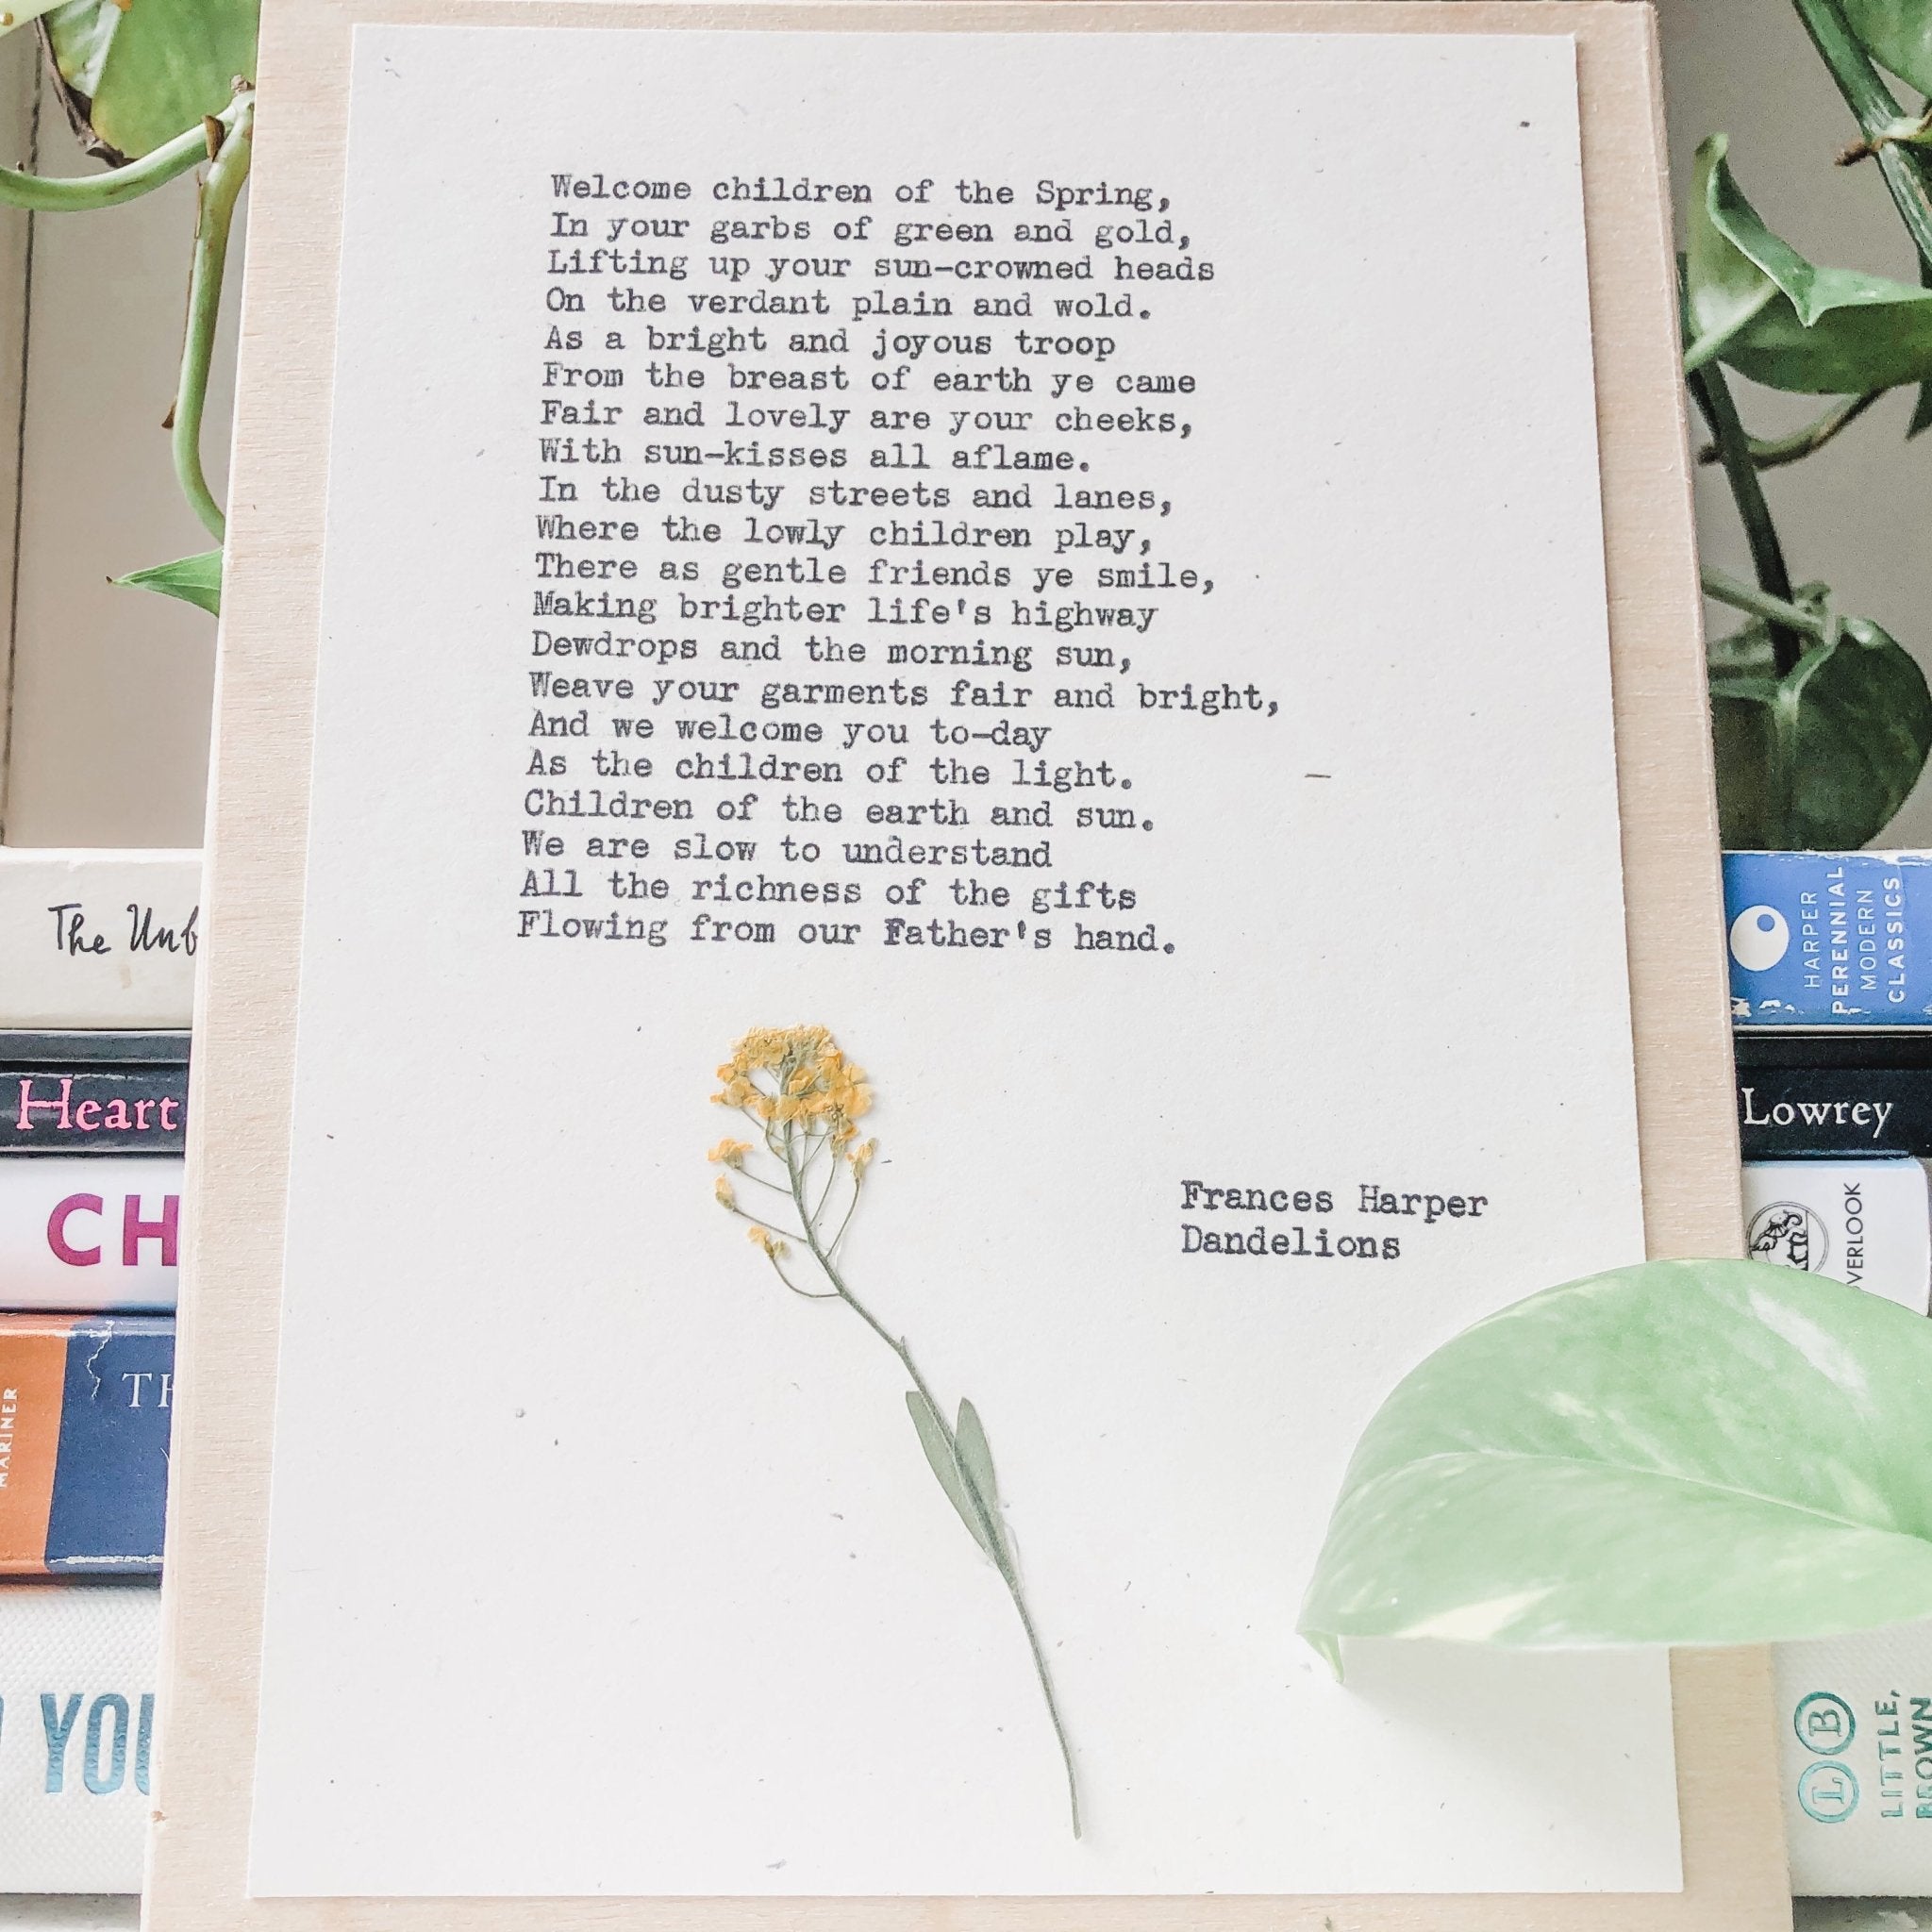 Welcome children of the Spring,
In your garbs of green and gold,
Lifting up your sun-crowned heads
On the verdant plain and wold.
As a bright and joyous troop
From the breast of earth ye came
Fair and lovely are your cheeks,
With sun-kisses all aflame.
In the dusty streets and lanes,
Where the lowly children play,
There as gentle friends ye smile,
Making brighter life's highway
Dewdrops and the morning sun,
Weave your garments fair and bright,
And we welcome you to-day
As the children of the light.
Children of the earth and sun.
We are slow to understand
All the richness of the gifts
Flowing from our Father's hand.
Frances Harper
Dandelions
The Unb
Heart
CH
MARINER
TH
YOU
HARPER
PERENNIAL
MODERN
CLASSICS
Lowrey
VERLOOK
LB
LITTLE,
BROWN